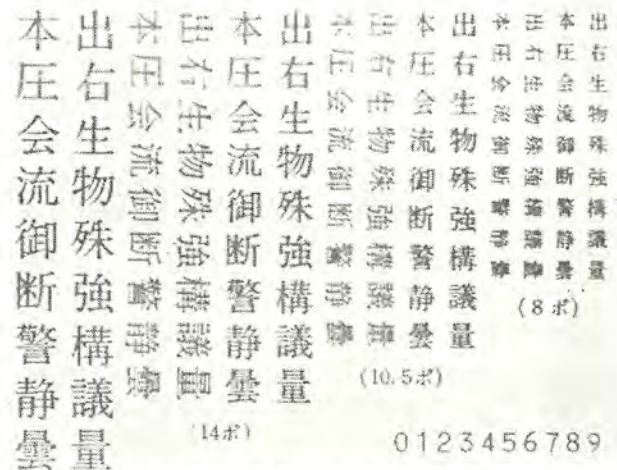 出右生物殊強構議量
本圧会流御断警静曇
出右生物殊強構議量
本圧会流御断警静曇
(8ポ)
出右生物殊強構議量
本圧会流御断警静曇
出右生物殊強構議量
本圧会流御断警静曇
(10.5ポ)
出右生物殊強構議量
本圧会流御断警静曇
出右生物殊強構議量
本圧会流御断警静曇
(14ポ)
出右生物殊強構議量
本圧会流御断警静曇
0123456789